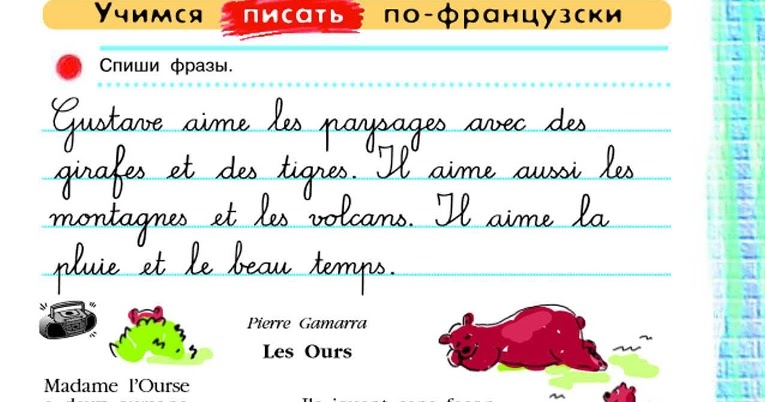 Учимся писать по-французски
Спиши фразы.
Gustave aime les paysages avec des
girafes et des tigres. Il aime aussi les
montagnes et les volcans. Il aime la
pluie et le beau temps.
Pierre Gamarra
Les Ours
Madame l'Ourse